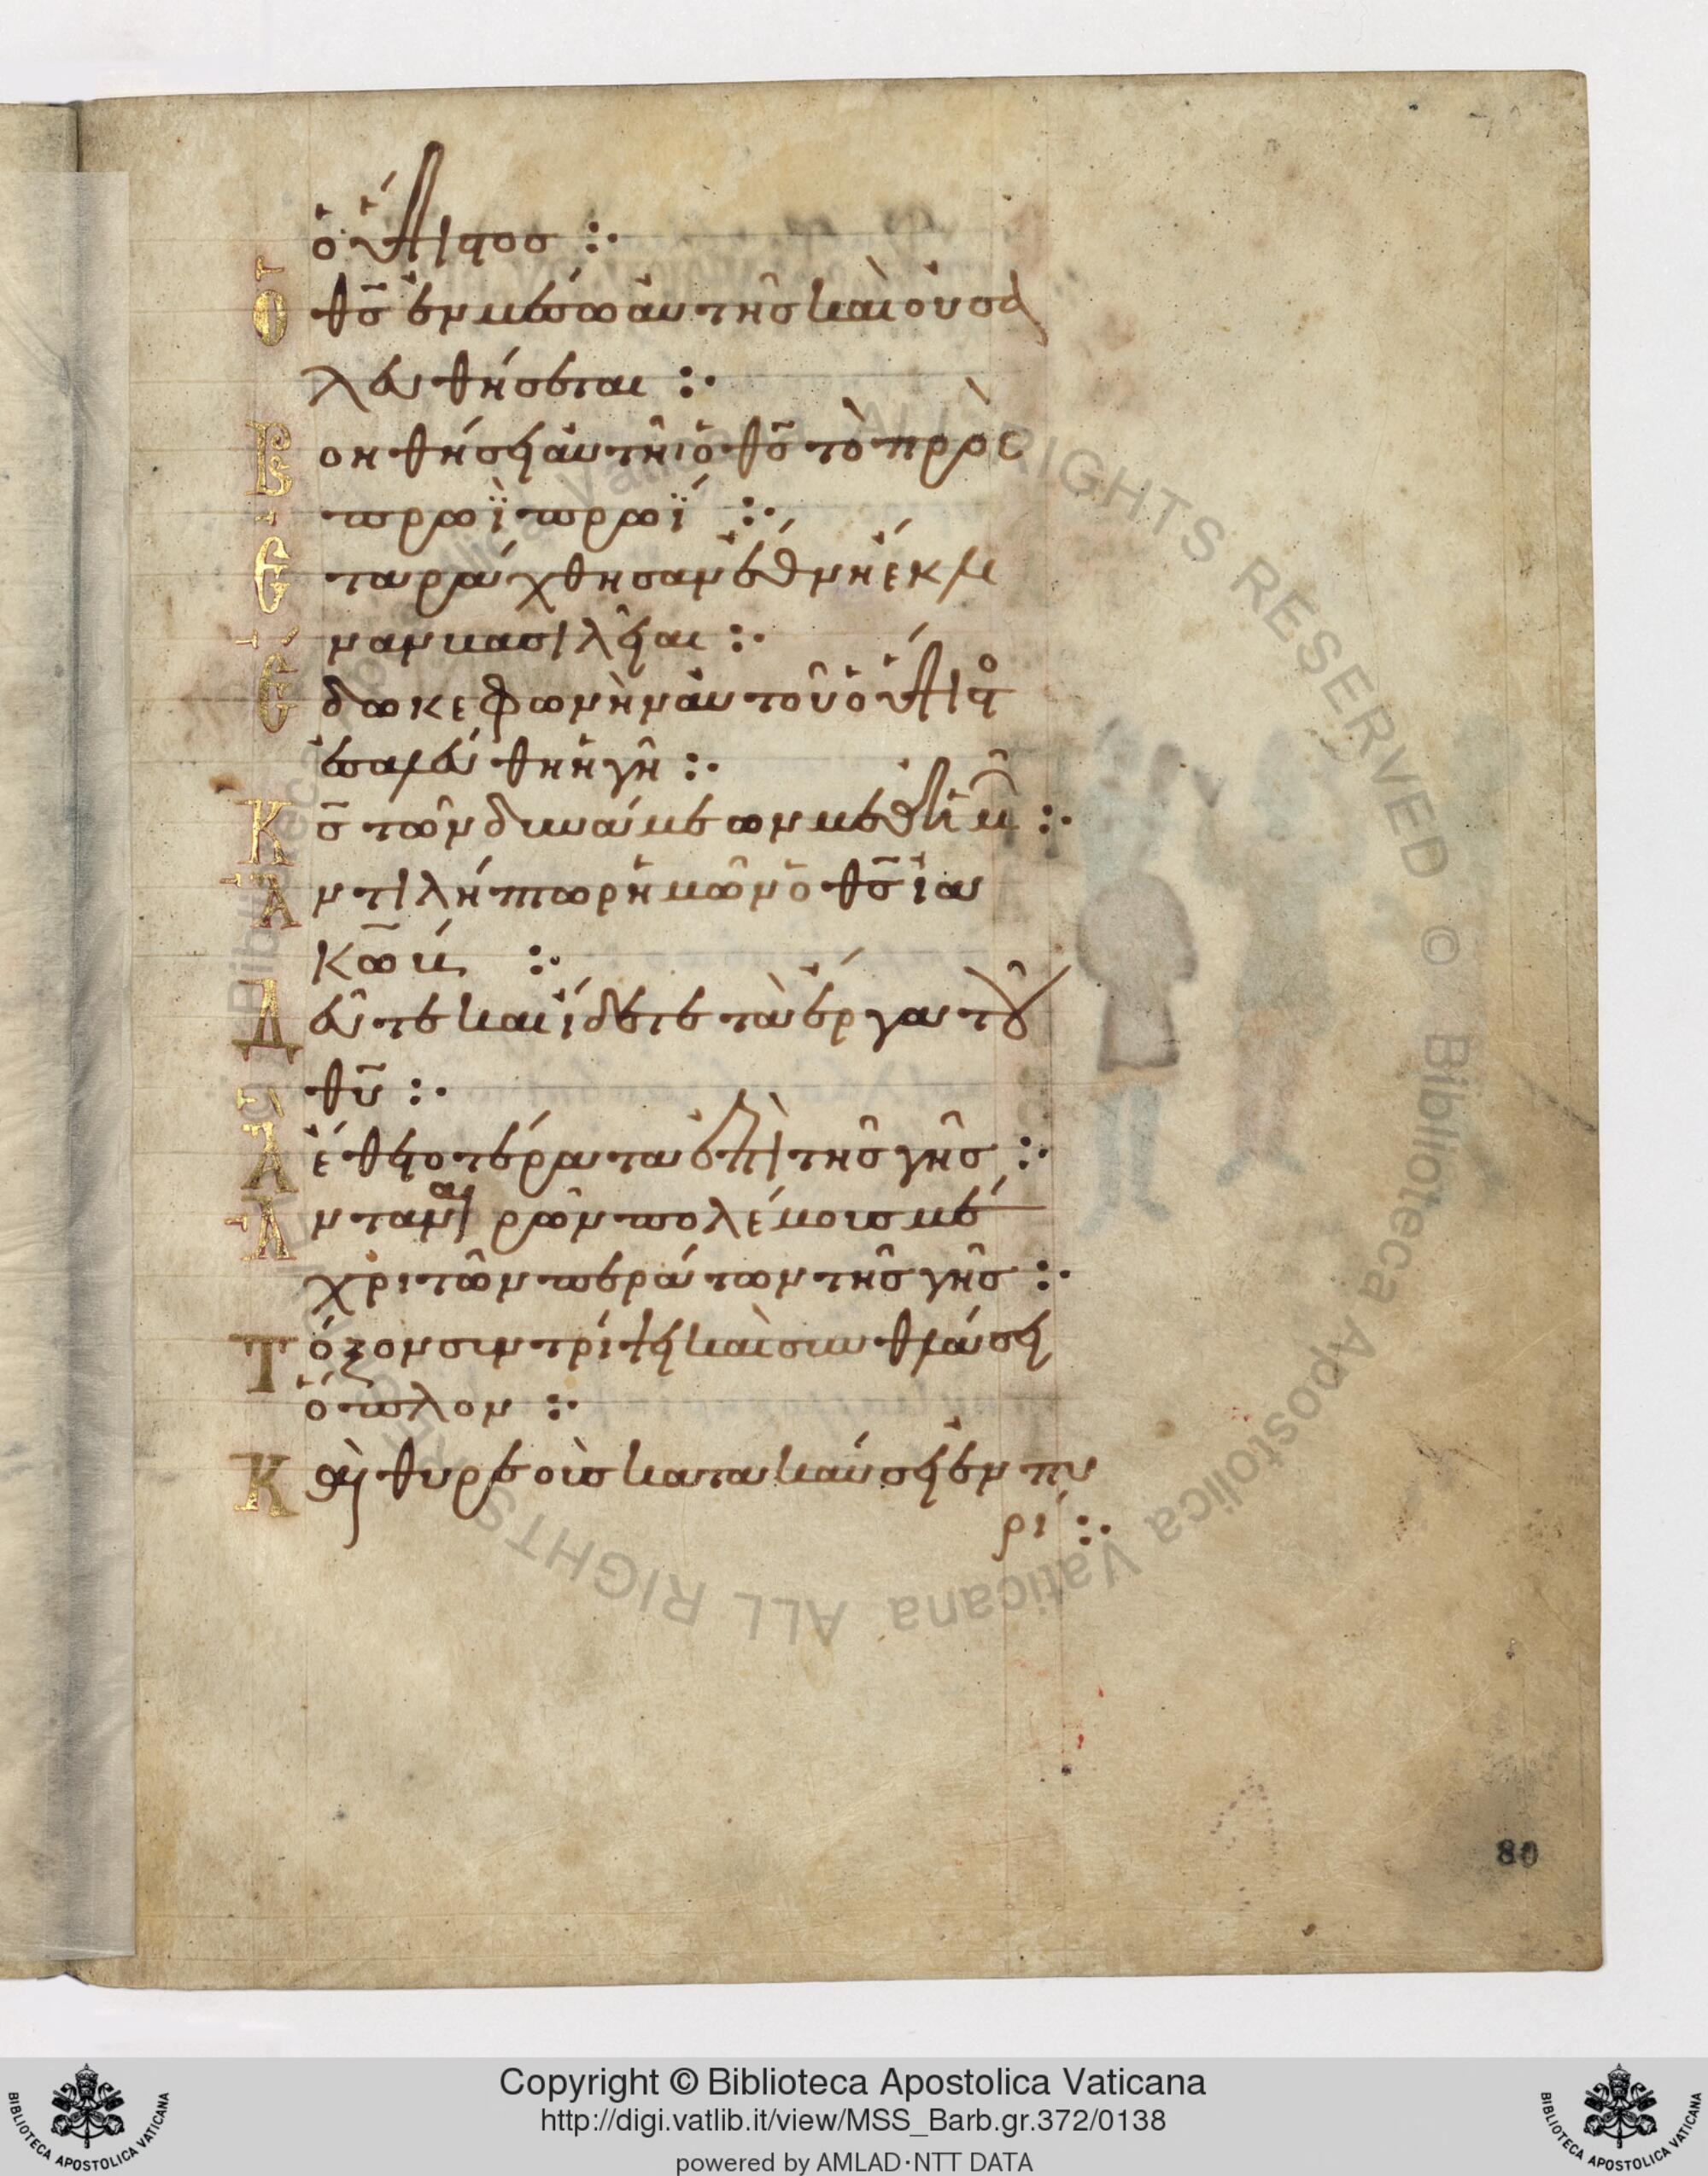 ὁ ὕψιστος :·
Ὁ θς̅ ἐν μέσω αὐτῆς καὶ οὐ σα
λευθήσεται :·
Βοηθήσει αὐτῆι ὁ θς̅ τὸ πρὸς
πρωῒ πρωΐ :·
Ἐταράχθησαν ἔθνη ἔκλι
ναν βασιλεῖαι :·
Ἔδωκε φωνὴν αὐτοῦ ὁ ὕψιστο
ἐσαλεύθη ἡ γῆ :·
Κς̅ τῶν δυνάμεων μεθ ἡμῶ :·
Ἀντιλήπτωρ ἡμῶν ὁ θς̅ ἰα
κώβ :·
Δεῦτε καὶ ἴδετε τὰ ἔργα τοῦ
θυ̅ :·
Ἃ ἔθετο τέρατα ἐπὶ τῆς γῆς :·
Ἀνταναιρῶν πολέμους μέ
χρι τῶν περάτων τῆς γῆς :·
Τόξον συντρίψει καὶ συνθλάσει
ὅπλον :·
Καὶ θυρεοὺς κατακαύσει ἐν πυ
ρί :·
80
ALL RIGHTS RESERVED © Biblioteca Apostolica Vaticana
Copyright © Biblioteca Apostolica Vaticana
http://digi.vatlib.it/view/MSS_Barb.gr.372/0138
powered by AMLAD·NTT DATA
BIBLIOTECA APOSTOLICA VATICANA
BIBLIOTECA APOSTOLICA VATICANA